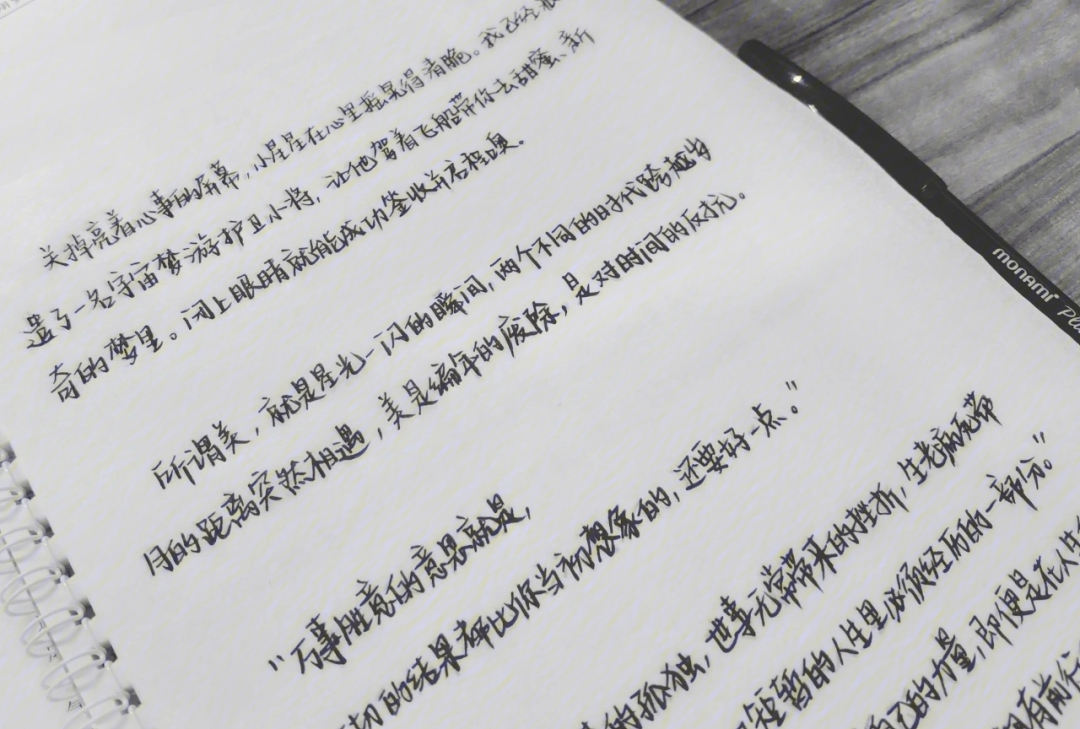 关掉亮着心事的屏幕,小星星在心里摇晃得清脆。我已经派
遣了一名宇宙梦游护卫小将,让他驾着飞船带你去甜蜜、新
奇的梦里。闭上眼睛就能成功签收并否极泰。
所谓美,就是星光一闪的瞬间,两个不同的时代跨越岁
月的距离突然相遇,美是编年的废除,是对时间的反抗。
"万事胜意的意思就是,
切的结果都比你当初想象的,还要好一点。"
的孤独,世事无常带来的挫折,生老病死带
短暂的人生里必须经历的一部分。"
自己的力量,即便是在人生
拥有前行
MONAMI Pl